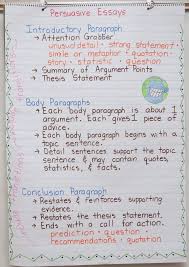 Persuasive Essays
Introductory Paragraph
→ Attention Grabber
unusual detail · strong statement
simile or metaphor · quotation
story · statistic · question
→ Summary of Argument Points
→ Thesis Statement
Body Paragraphs
→ Each body paragraph is about 1
argument. Each gives 1 piece of
advice.
→ Each body paragraph begins with a
topic sentence.
→ Detail sentences support the topic
sentence & may contain quotes,
statistics, & facts.
Conclusion Paragraph
→ Restates & reinforces supporting
evidence.
→ Restates the thesis statement.
→ Ends with a call for action.
prediction · question ·
recommendations · quotation